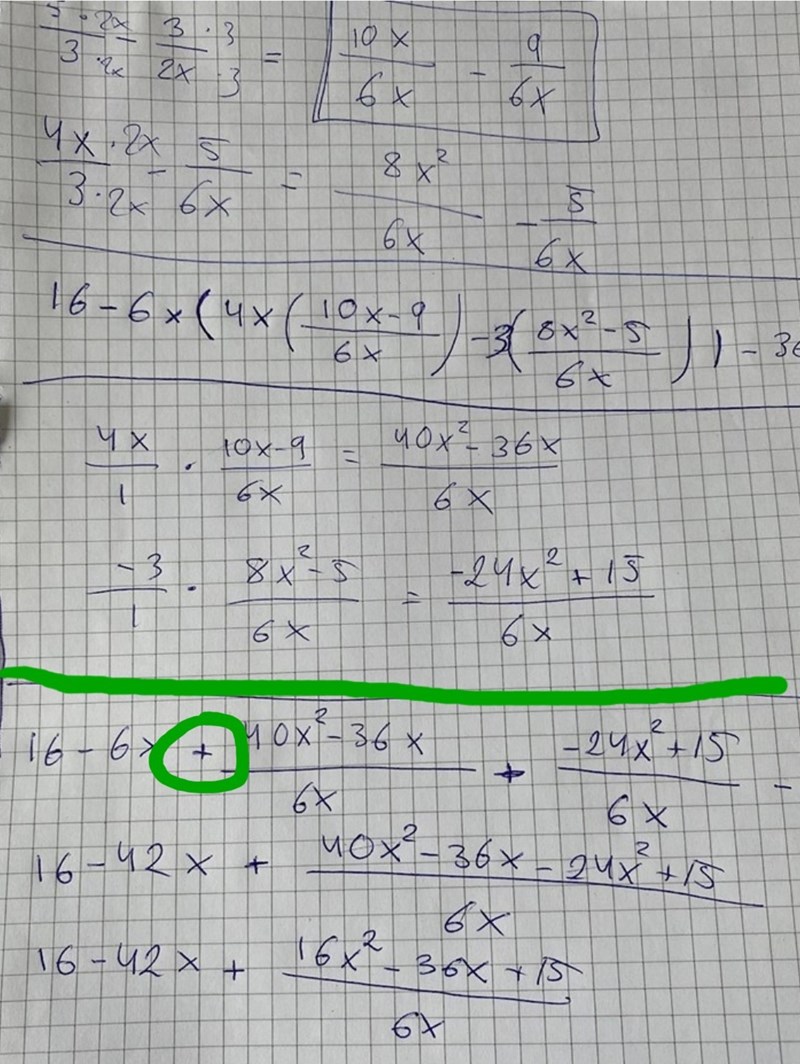 5·2x/3·2x - 3·3/2x·3 = 10x/6x - 9/6x
4x·2x/3·2x - 5/6x = 8x²/6x - 5/6x
16-6x(4x(10x-9/6x)-3(8x²-5/6x))-36
4x/1 · 10x-9/6x = 40x²-36x/6x
-3/1 · 8x²-5/6x = -24x²+15/6x
16-6x + 40x²-36x/6x + -24x²+15/6x -
16-42x + 40x²-36x-24x²+15/6x
16-42x + 16x²-36x+15/6x